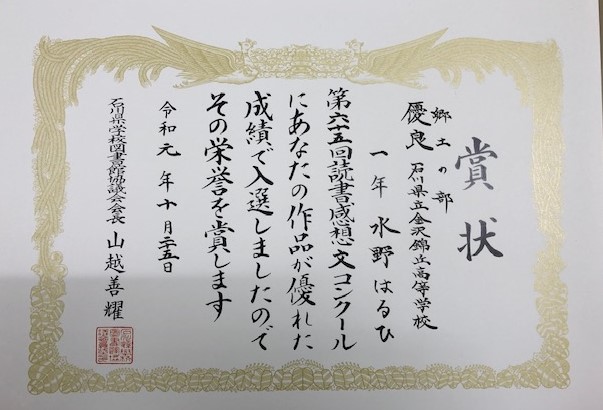 賞状
郷土の部
優良 石川県立金沢錦丘高等学校
一年 水野はるひ
第六十五回読書感想文コンクール
にあなたの作品が優れた
成績で入選しましたので
その栄誉を賞します
令和元年十月二十五日
石川県学校図書館協議会会長 山越善耀